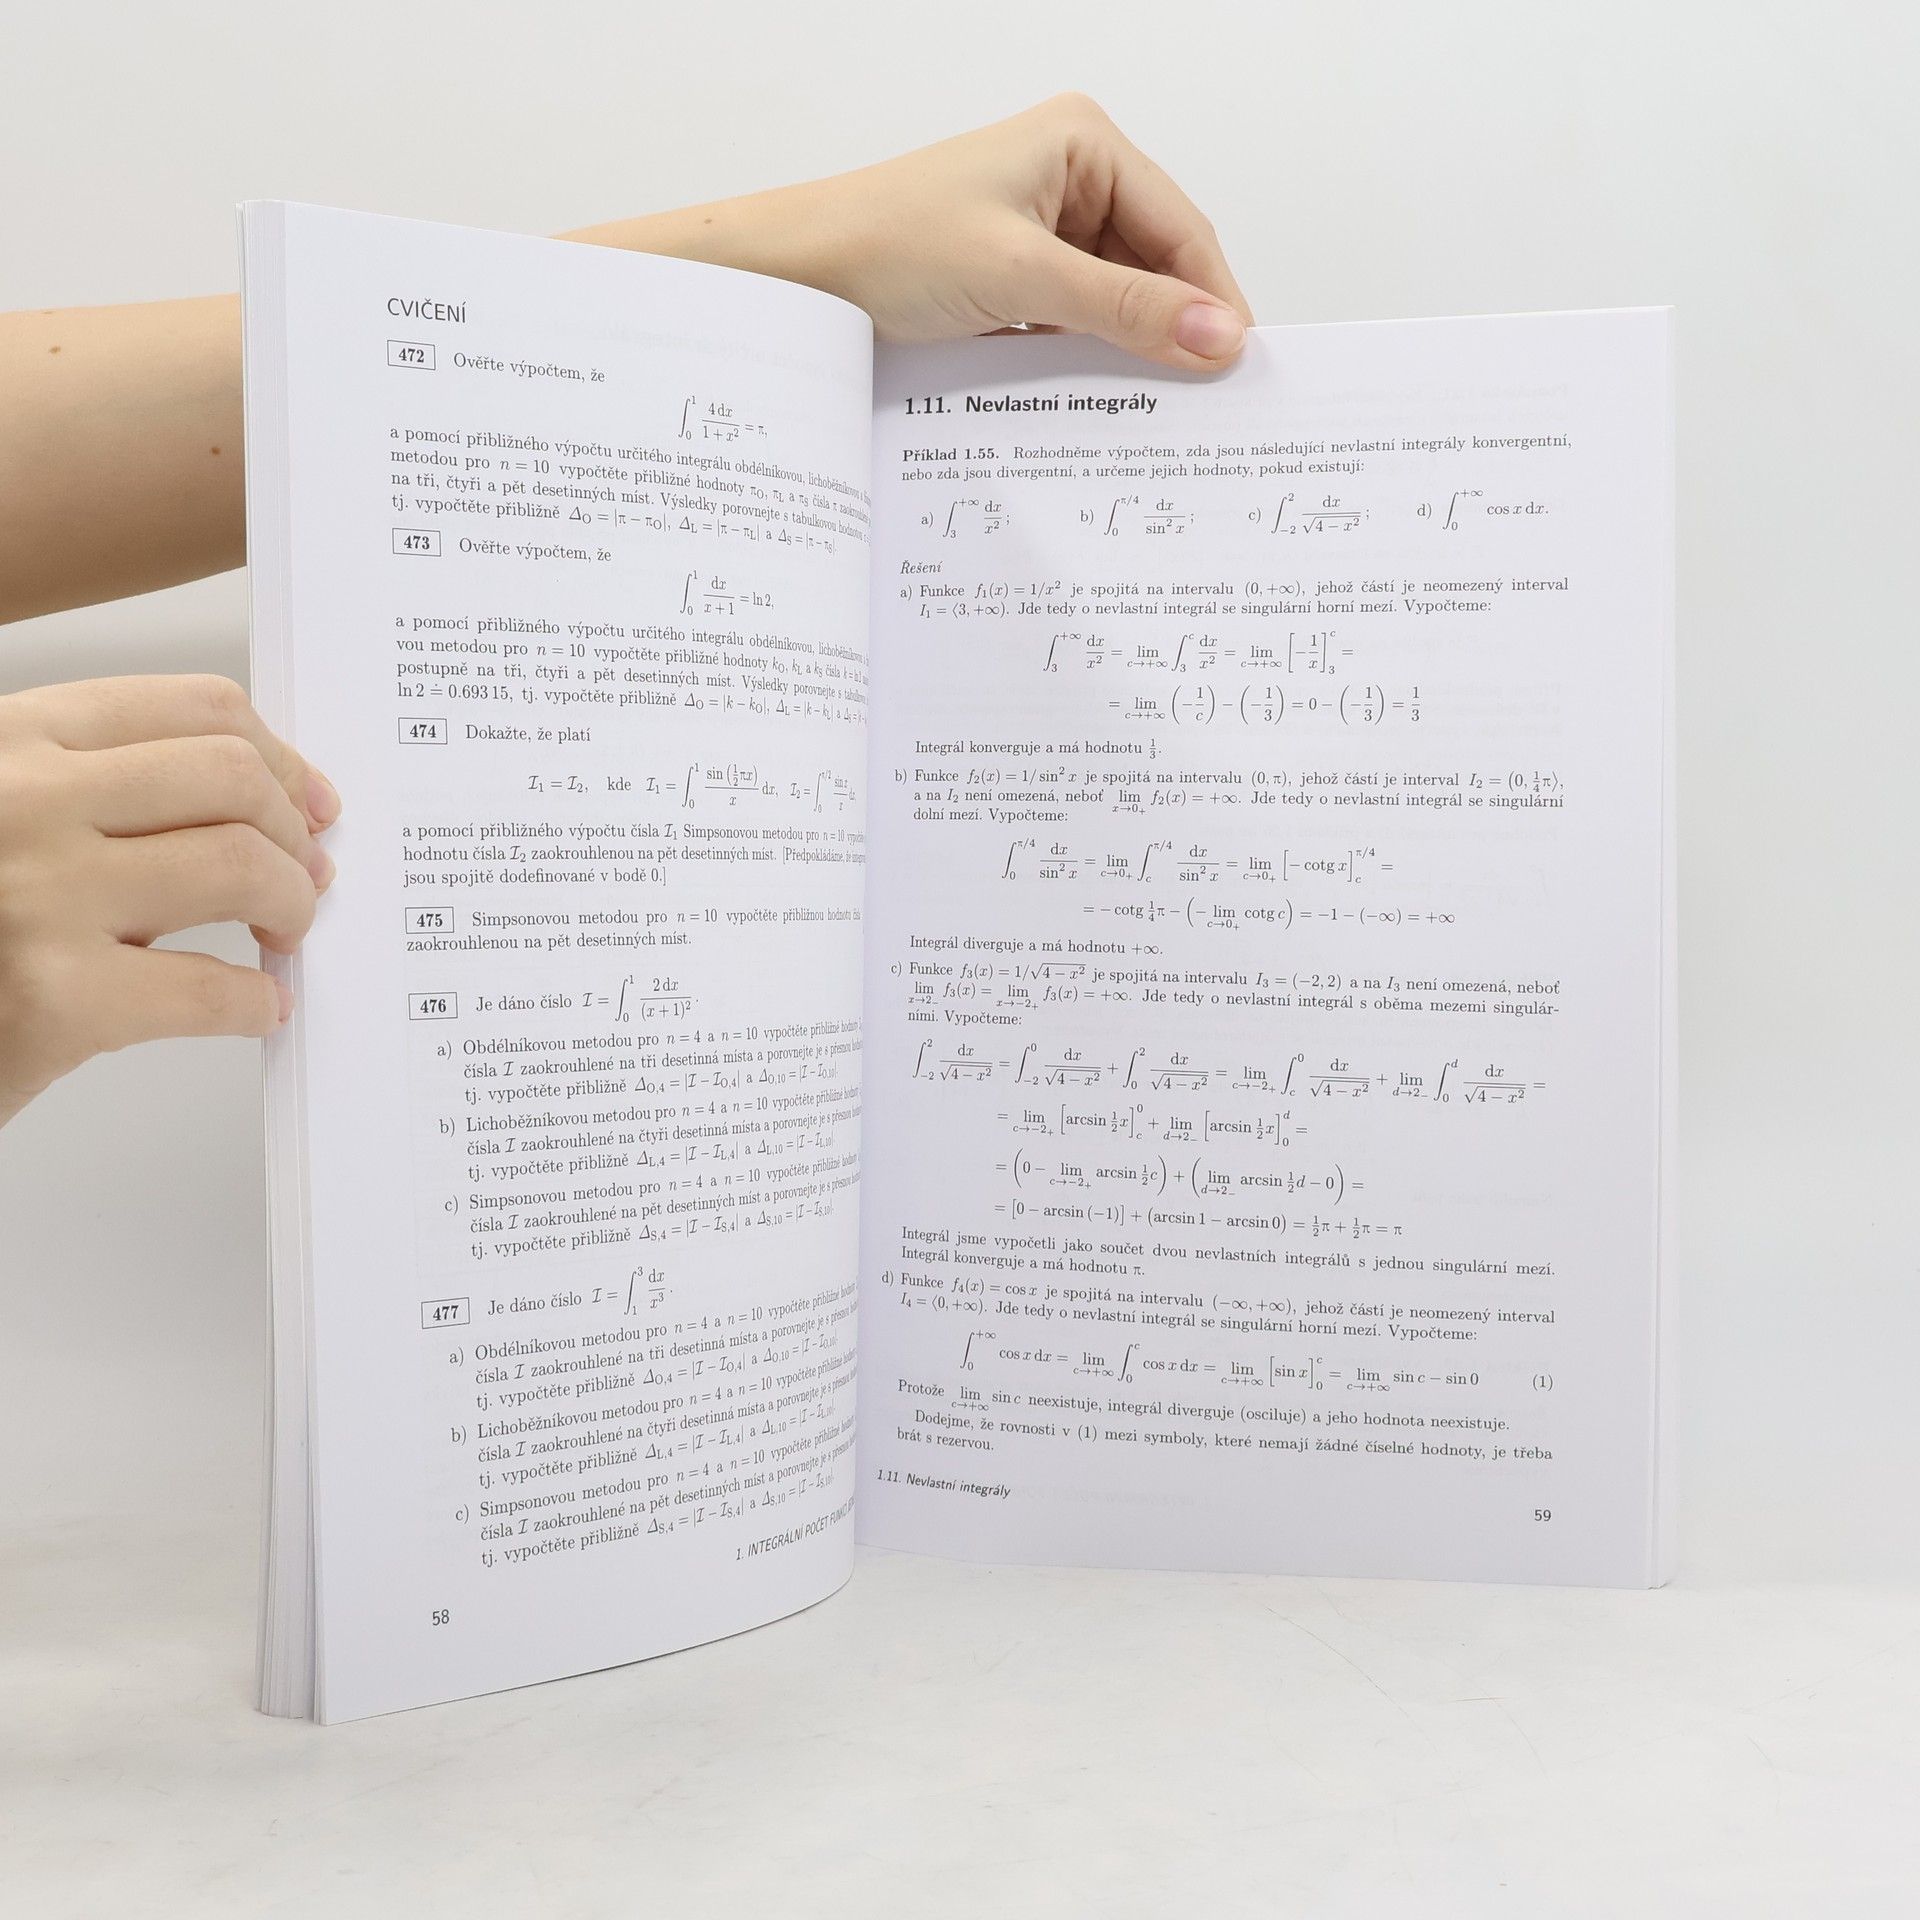 CVIČENÍ
472 Ověřte výpočtem, že
∫₀¹ 4 dx / (1 + x²) = π,
a pomocí přibližného výpočtu určitého integrálu obdélníkovou, lichoběžníkovou a
metodou pro n = 10 vypočtěte přibližné hodnoty π_O, π_L a π_S čísla π
na tři, čtyři a pět desetinných míst. Výsledky porovnejte s tabulkovou hodnotou
tj. vypočtěte přibližně Δ_O = |π − π_O|, Δ_L = |π − π_L| a Δ_S = |π − π_S|.
473 Ověřte výpočtem, že
∫₀¹ dx / (x + 1) = ln 2,
a pomocí přibližného výpočtu určitého integrálu obdélníkovou, lichoběžníkovou a
vou metodou pro n = 10 vypočtěte přibližné hodnoty k_O, k_L a k_S čísla k = ln 2
postupně na tři, čtyři a pět desetinných míst. Výsledky porovnejte s
ln 2 ≐ 0.693 15, tj. vypočtěte přibližně Δ_O = |k − k_O|, Δ_L = |k − k_L| a Δ_S =
474 Dokažte, že platí
I₁ = I₂, kde I₁ = ∫₀¹ sin (½πx) / x dx, I₂ = ∫₀^{π/2} sin x / x dx,
a pomocí přibližného výpočtu čísla I₁ Simpsonovou metodou pro n = 10
hodnotu čísla I₂ zaokrouhlenou na pět desetinných míst. [Předpokládáme, že
jsou spojitě dodefinované v bodě 0.]
475 Simpsonovou metodou pro n = 10 vypočtěte přibližnou hodnotu
zaokrouhlenou na pět desetinných míst.
476 Je dáno číslo I = ∫₀¹ 2 dx / (x + 1)².
a) Obdélníkovou metodou pro n = 4 a n = 10 vypočtěte přibližné hodnoty
čísla I zaokrouhlené na tři desetinná místa a porovnejte je s přesnou
tj. vypočtěte přibližně Δ_{O,4} = |I − I_{O,4}| a Δ_{O,10} = |I − I_{O,10}|.
b) Lichoběžníkovou metodou pro n = 4 a n = 10 vypočtěte přibližné hodnoty
čísla I zaokrouhlené na čtyři desetinná místa a porovnejte je s přesnou
tj. vypočtěte přibližně Δ_{L,4} = |I − I_{L,4}| a Δ_{L,10} = |I − I_{L,10}|.
c) Simpsonovou metodou pro n = 4 a n = 10 vypočtěte přibližné hodnoty
čísla I zaokrouhlené na pět desetinných míst a porovnejte je s přesnou
tj. vypočtěte přibližně Δ_{S,4} = |I − I_{S,4}| a Δ_{S,10} = |I − I_{S,10}|.
477 Je dáno číslo I = ∫₁³ dx / x³.
a) Obdélníkovou metodou pro n = 4 a n = 10 vypočtěte přibližné hodnoty
čísla I zaokrouhlené na tři desetinná místa a porovnejte je s přesnou
tj. vypočtěte přibližně Δ_{O,4} = |I − I_{O,4}| a Δ_{O,10} = |I − I_{O,10}|.
b) Lichoběžníkovou metodou pro n = 4 a n = 10 vypočtěte přibližné
čísla I zaokrouhlené na čtyři desetinná místa a porovnejte je s přesnou
tj. vypočtěte přibližně Δ_{L,4} = |I − I_{L,4}| a Δ_{L,10} = |I − I_{L,10}|.
c) Simpsonovou metodou pro n = 4 a n = 10 vypočtěte přibližné
čísla I zaokrouhlené na pět desetinných míst a porovnejte je s přesnou
tj. vypočtěte přibližně Δ_{S,4} = |I − I_{S,4}| a Δ_{S,10} = |I − I_{S,10}|.
1. INTEGRÁLNÍ POČET FUNKCÍ
58
1.11. Nevlastní integrály
Příklad 1.55. Rozhodněme výpočtem, zda jsou následující nevlastní integrály konvergentní,
nebo zda jsou divergentní, a určeme jejich hodnoty, pokud existují:
a) ∫₃^{+∞} dx / x²; b) ∫₀^{π/4} dx / sin² x; c) ∫₋₂² dx / √(4 − x²); d) ∫₀^{+∞} cos x dx.
Řešení
a) Funkce f₁(x) = 1/x² je spojitá na intervalu (0, +∞), jehož částí je neomezený interval
I₁ = ⟨3, +∞). Jde tedy o nevlastní integrál se singulární horní mezí. Vypočteme:
∫₃^{+∞} dx / x² = lim_{c→+∞} ∫₃^c dx / x² = lim_{c→+∞} [−1/x]₃^c =
= lim_{c→+∞} (−1/c) − (−1/3) = 0 − (−1/3) = 1/3
Integrál konverguje a má hodnotu ⅓.
b) Funkce f₂(x) = 1/ sin² x je spojitá na intervalu (0, π), jehož částí je interval I₂ = (0, ¼π⟩,
a na I₂ není omezená, neboť lim_{x→0₊} f₂(x) = +∞. Jde tedy o nevlastní integrál se singulární
dolní mezí. Vypočteme:
∫₀^{π/4} dx / sin² x = lim_{c→0₊} ∫_c^{π/4} dx / sin² x = lim_{c→0₊} [− cotg x]_c^{π/4} =
= − cotg ¼π − (− lim_{c→0₊} cotg c) = −1 − (−∞) = +∞
Integrál diverguje a má hodnotu +∞.
c) Funkce f₃(x) = 1/√(4 − x²) je spojitá na intervalu I₃ = (−2, 2) a na I₃ není omezená, neboť
lim_{x→2₋} f₃(x) = lim_{x→−2₊} f₃(x) = +∞. Jde tedy o nevlastní integrál s oběma mezemi singulár-
ními. Vypočteme:
∫₋₂² dx / √(4 − x²) = ∫₋₂⁰ dx / √(4 − x²) + ∫₀² dx / √(4 − x²) = lim_{c→−2₊} ∫_c⁰ dx / √(4 − x²) + lim_{d→2₋} ∫₀^d dx / √(4 − x²) =
= lim_{c→−2₊} [arcsin ½x]_c⁰ + lim_{d→2₋} [arcsin ½x]₀^d =
= (0 − lim_{c→−2₊} arcsin ½c) + (lim_{d→2₋} arcsin ½d − 0) =
= [0 − arcsin (−1)] + (arcsin 1 − arcsin 0) = ½π + ½π = π
Integrál jsme vypočetli jako součet dvou nevlastních integrálů s jednou singulární mezí.
Integrál konverguje a má hodnotu π.
d) Funkce f₄(x) = cos x je spojitá na intervalu (−∞, +∞), jehož částí je neomezený interval
I₄ = ⟨0, +∞). Jde tedy o nevlastní integrál se singulární horní mezí. Vypočteme:
∫₀^{+∞} cos x dx = lim_{c→+∞} ∫₀^c cos x dx = lim_{c→+∞} [sin x]₀^c = lim_{c→+∞} sin c − sin 0 (1)
Protože lim_{c→+∞} sin c neexistuje, integrál diverguje (osciluje) a jeho hodnota neexistuje.
Dodejme, že rovnosti v (1) mezi symboly, které nemají žádné číselné hodnoty, je třeba
brát s rezervou.
1.11. Nevlastní integrály
59